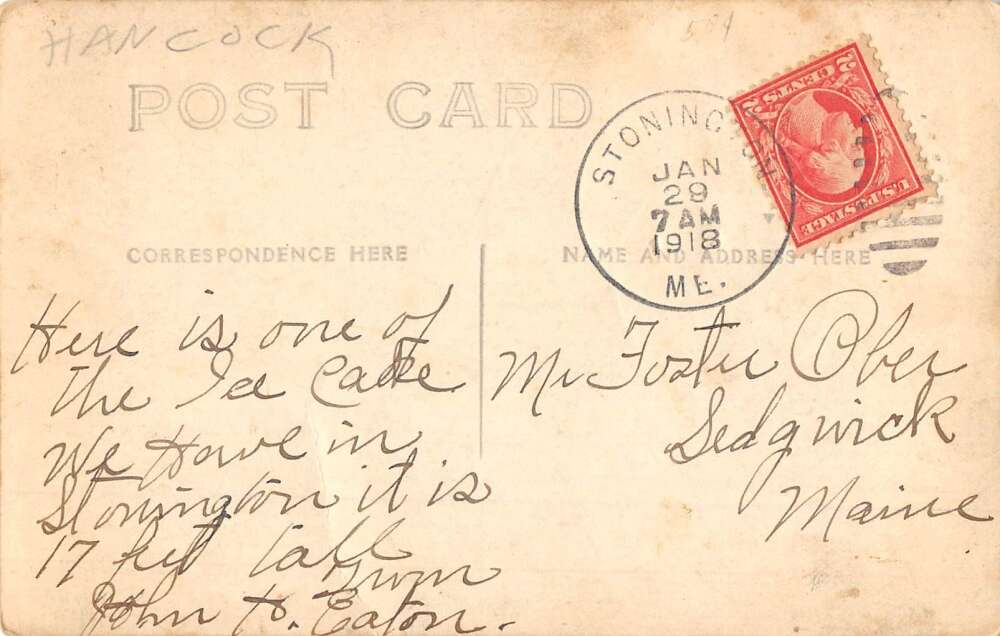 HANCOCK
594
POST CARD
STONINGTON
JAN
29
7 AM
1918
ME.
2 CENTS 2
U.S. POSTAGE
CORRESPONDENCE HERE
NAME AND ADDRESS HERE
Here is one of
the Ice Cake
We Have in
Stonington it is
17 feet tall
from
John H. Eaton.
Mr Foster Ober
Sedgwick
Maine